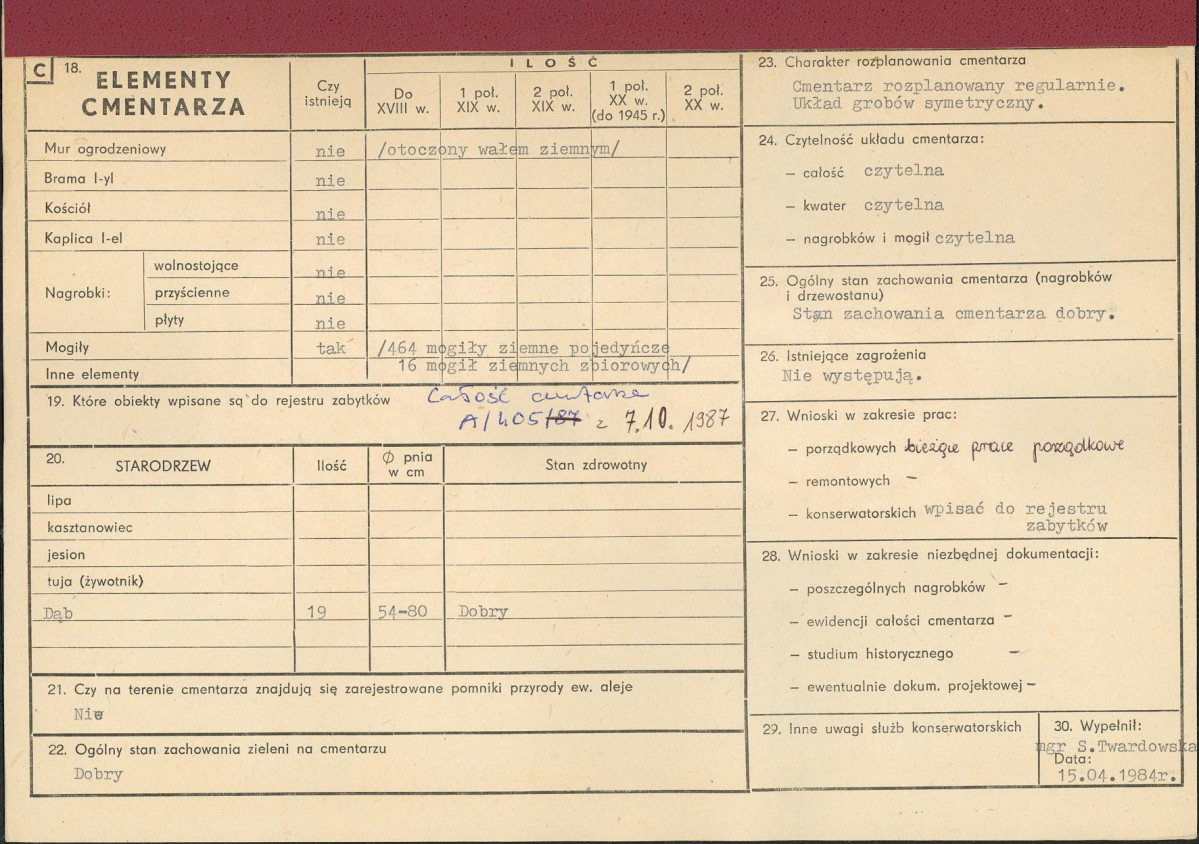 C 18. ELEMENTY CMENTARZA
Czy istnieją
ILOŚĆ
Do XVIII w.
1 poł. XIX w.
2 poł. XIX w.
1 poł. XX w. (do 1945 r.)
2 poł. XX w.
Mur ogrodzeniowy nie /otoczony wałem ziemnym/
Brama I-yl nie
Kościół nie
Kaplica I-el nie
Nagrobki:
wolnostojące nie
przyścienne nie
płyty nie
Mogiły tak /464 mogiły ziemne pojedyńcze
Inne elementy 16 mogił ziemnych zbiorowych/
19. Które obiekty wpisane są do rejestru zabytków Całość cmentarza
A/405/87 z 7.10.1987
20. STARODRZEW Ilość Ø pnia w cm Stan zdrowotny
lipa
kasztanowiec
jesion
tuja (żywotnik)
Dąb 19 54-80 Dobry
21. Czy na terenie cmentarza znajdują się zarejestrowane pomniki przyrody ew. aleje
Nie
22. Ogólny stan zachowania zieleni na cmentarzu
Dobry
23. Charakter rozplanowania cmentarza
Cmentarz rozplanowany regularnie.
Układ grobów symetryczny.
24. Czytelność układu cmentarza:
– całość czytelna
– kwater czytelna
– nagrobków i mogił czytelna
25. Ogólny stan zachowania cmentarza (nagrobków
i drzewostanu)
Stan zachowania cmentarza dobry.
26. Istniejące zagrożenia
Nie występują.
27. Wnioski w zakresie prac:
– porządkowych bieżące prace porządkowe
– remontowych –
– konserwatorskich wpisać do rejestru
zabytków
28. Wnioski w zakresie niezbędnej dokumentacji:
– poszczególnych nagrobków –
– ewidencji całości cmentarza –
– studium historycznego –
– ewentualnie dokum. projektowej –
29. Inne uwagi służb konserwatorskich
30. Wypełnił:
mgr S.Twardowska
Data:
15.04.1984r.